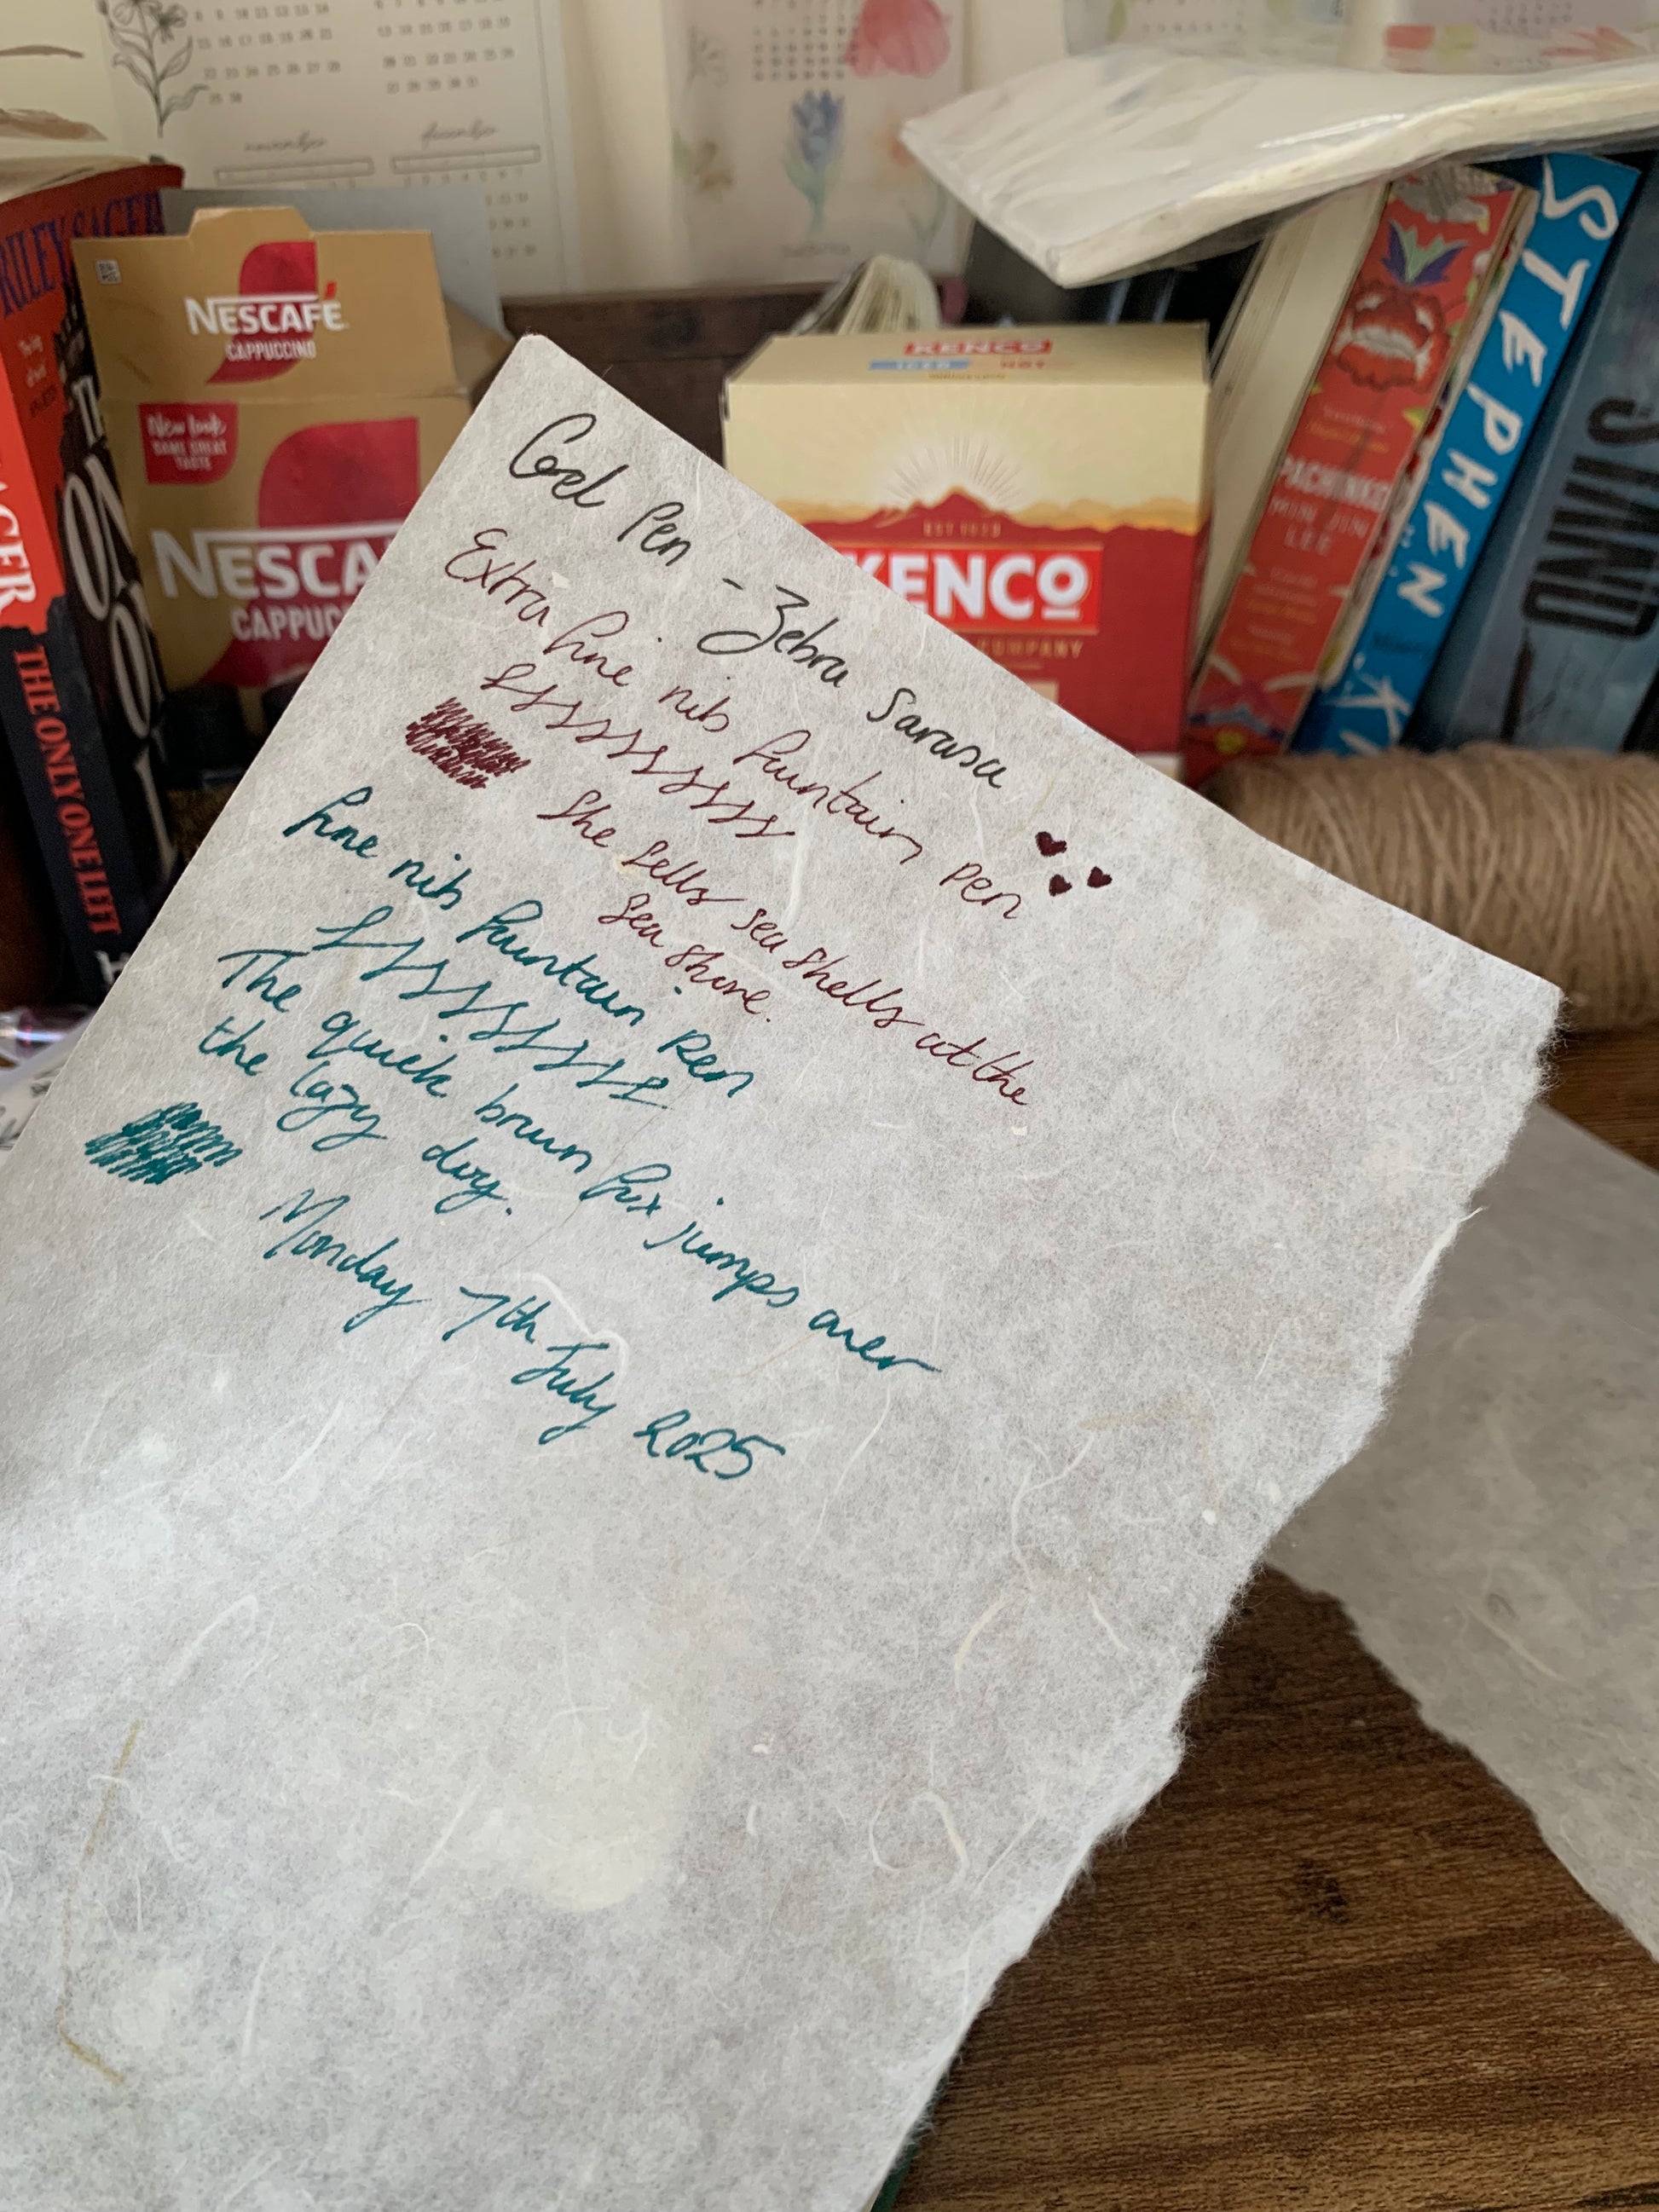 november
december
RILEY SAGER
THE ONLY ONE LEFT
NESCAFÉ
CAPPUCCINO
New look
SAME GREAT
TASTE
NESCA
CAPPUC
KENCO
ICED
HOT
EST 1923
KENCO
COMPANY
PACHINKO
MIN JIN
LEE
STEPHEN
KI
STAND
Gel Pen - Zebra Sarasa
Extra fine nib fountain pen
She sells sea shells at the
sea shore.
fine nib fountain pen
The quick brown fox jumps over
the lazy dog.
Monday 7th July 2025